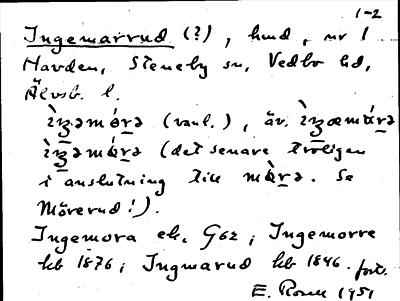 1-2
Ingemarrud (?), hmd, nr 1
Havden, Steneby sn, Vedbo hd,
Älvsb. l.
(vanl.), äv.
(det senare troligen
i anslutning till Se
Mörerud!).
Ingemora ek. G62; Ingemorre
hb 1876; Ingmarud hb 1846.
forts.
E. Rosen 1951